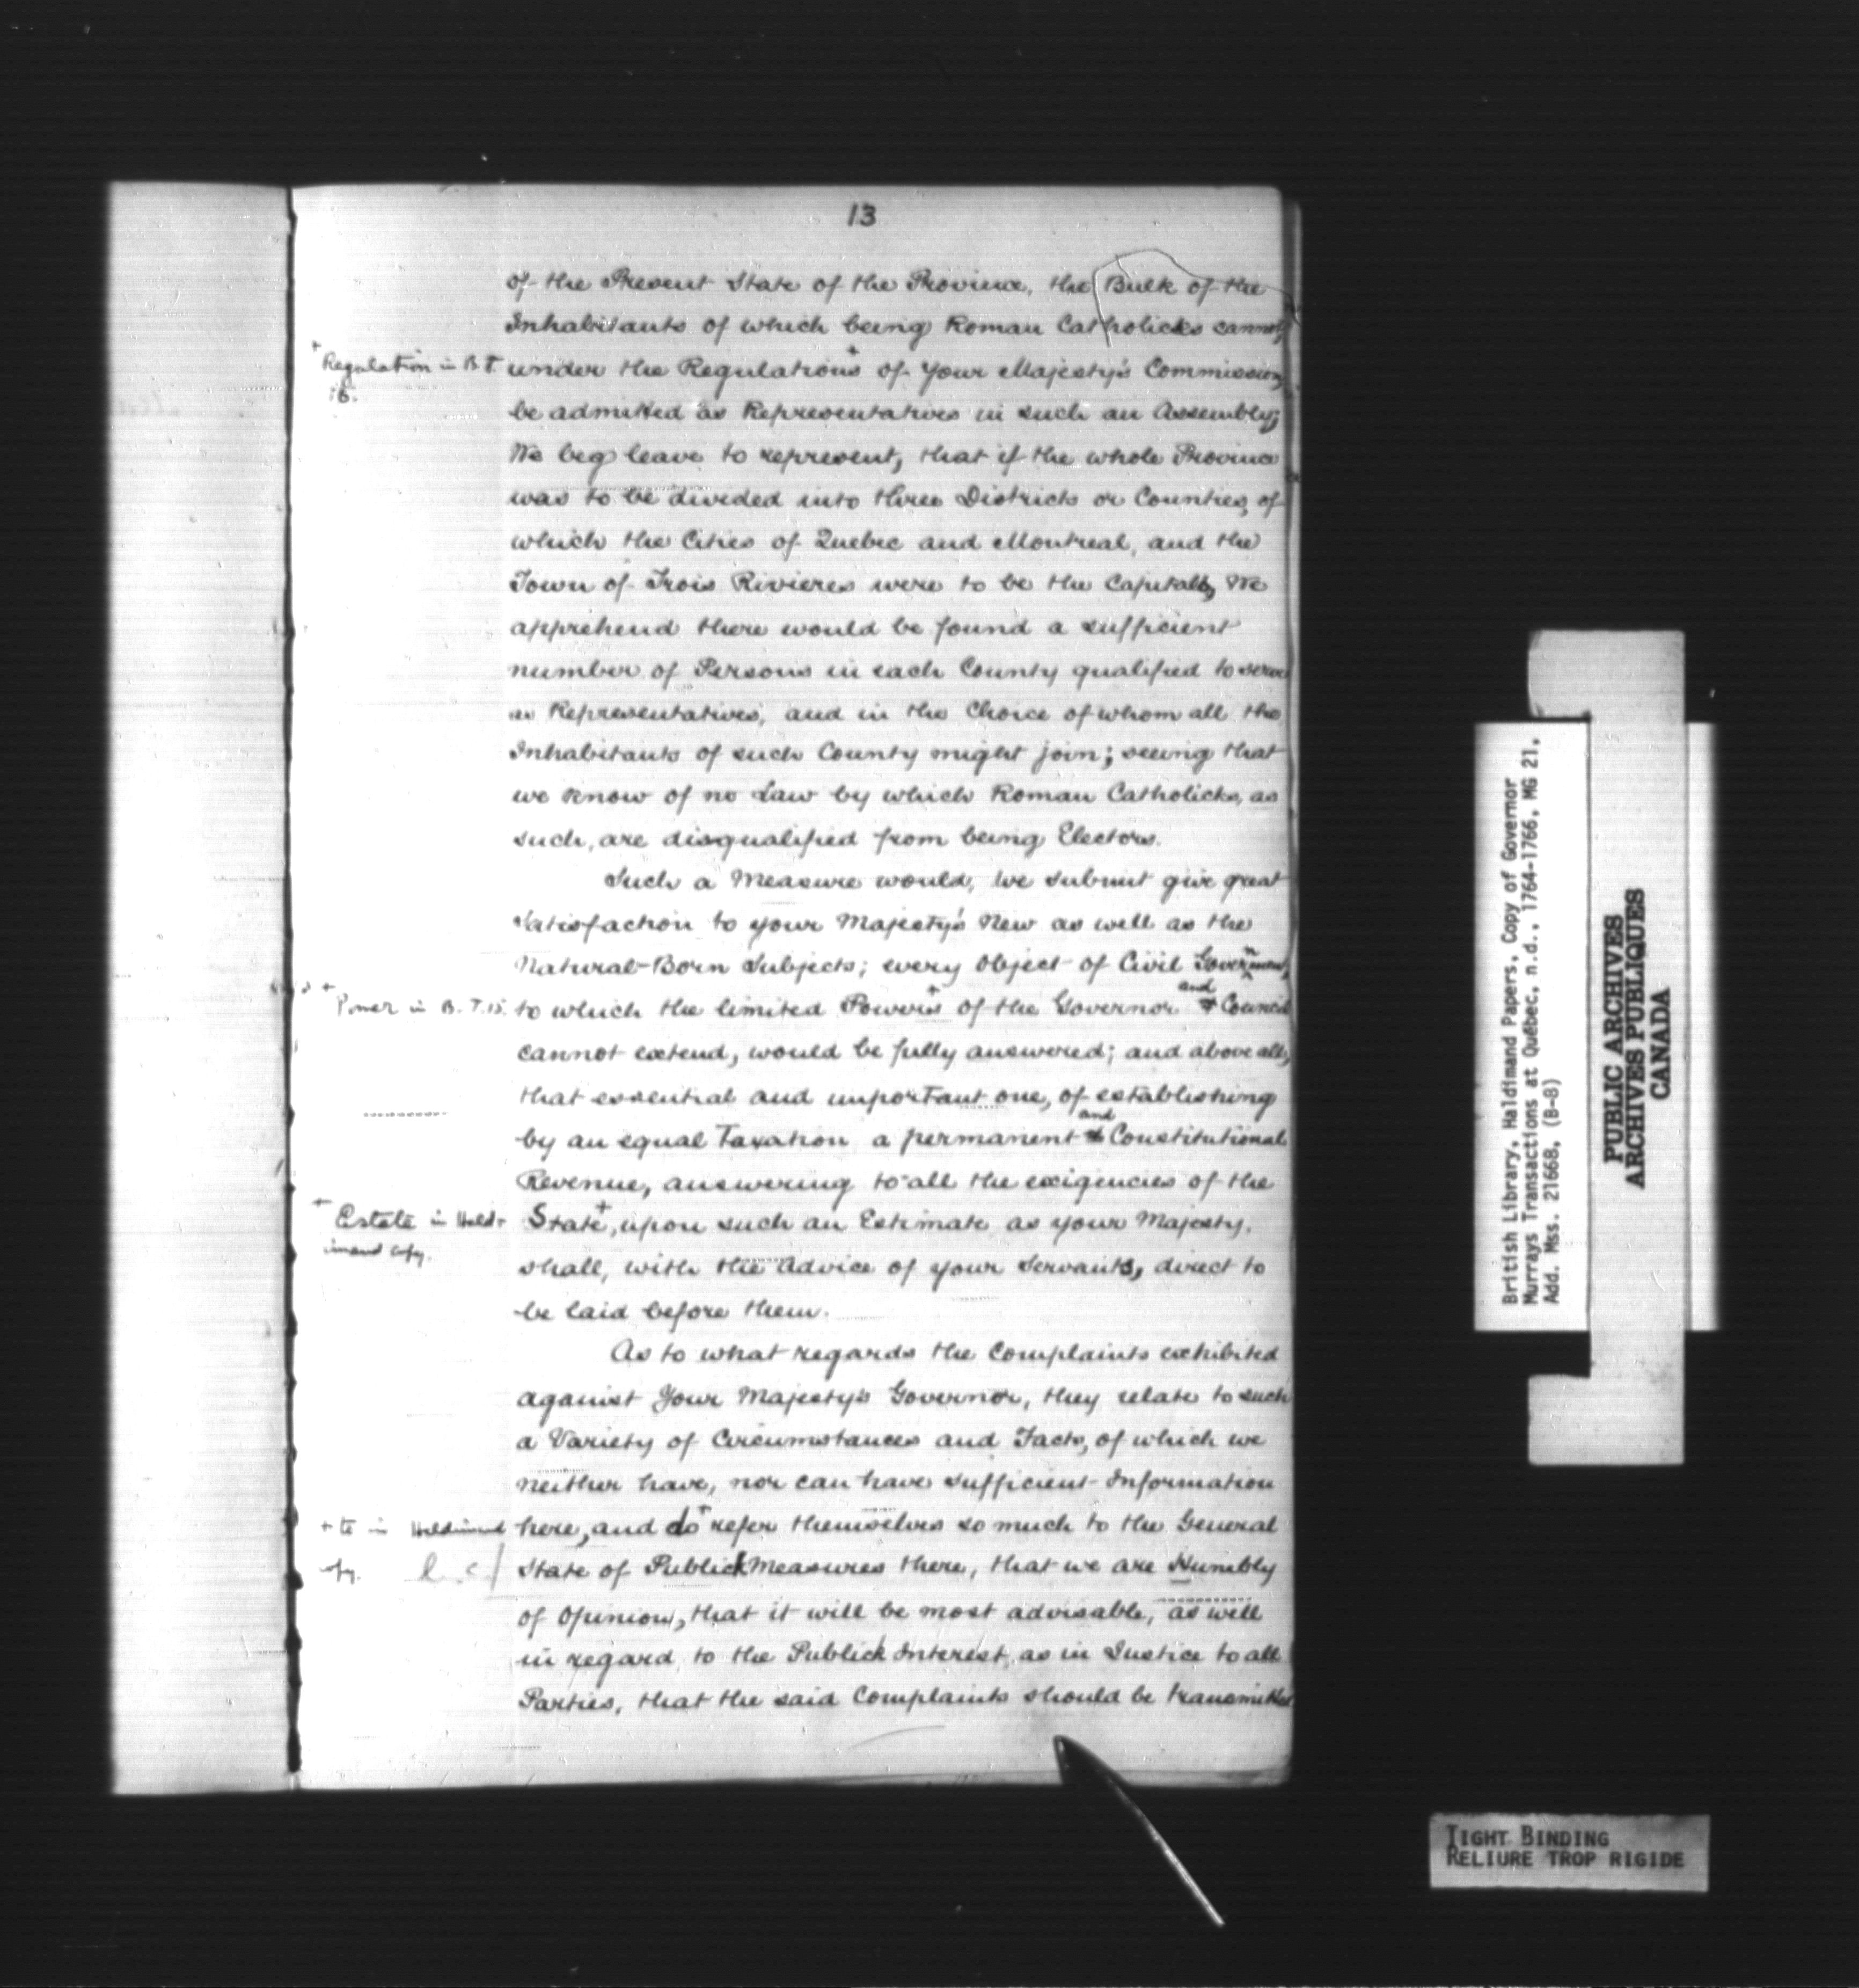 13
of the Present State of the Province, the Bulk of the
Inhabitants of which being Roman Catholicks cannot,
+ Regulation in B.T. 16.
under the Regulations+ of Your Majesty's Commission,
be admitted as Representatives in such an Assembly;
We beg leave to represent, that if the whole Province
was to be divided into three Districts or Counties, of
which the Cities of Quebec and Montreal, and the
Town of Trois Rivieres were to be the Capitals, We
apprehend there would be found a sufficient
number of Persons in each County qualified to serve
as Representatives, and in the Choice of whom all the
Inhabitants of such County might join; seeing that
we know of no Law by which Roman Catholicks, as
such, are disqualified from being Electors.
Such a Measure would, we submit give great
Satisfaction to your Majesty's New as well as the
Natural-Born Subjects; every Object of Civil Government,
+ Power in B.T. 15.
to which the limited Powers+ of the Governor and & Council
cannot extend, would be fully answered; and above all,
that essential and important one, of establishing
by an equal Taxation a permanent and & Constitutional
Revenue, answering to all the exigencies of the
+ Estate in Hald-
imand copy.
State+, upon such an Estimate as your Majesty,
shall, with the Advice of your Servants, direct to
be laid before them.
As to what regards the Complaints exhibited
against Your Majesty's Governor, they relate to such
a Variety of Circumstances and Facts, of which we
neither have, nor can have sufficient Information
+ to in Haldimand
copy.
here, and do+ refer themselves so much to the General
l.c./
State of Publick Measures there, that we are Humbly
of Opinion, that it will be most advisable, as well
in regard to the Publick Interest, as in Justice to all
Parties, that the said Complaints should be transmitted
British Library, Haldimand Papers, Copy of Governor
Murrays Transactions at Québec, n.d., 1764-1766, MG 21,
Add. Mss. 21668, (B-8)
PUBLIC ARCHIVES
ARCHIVES PUBLIQUES
CANADA
TIGHT BINDING
RELIURE TROP RIGIDE